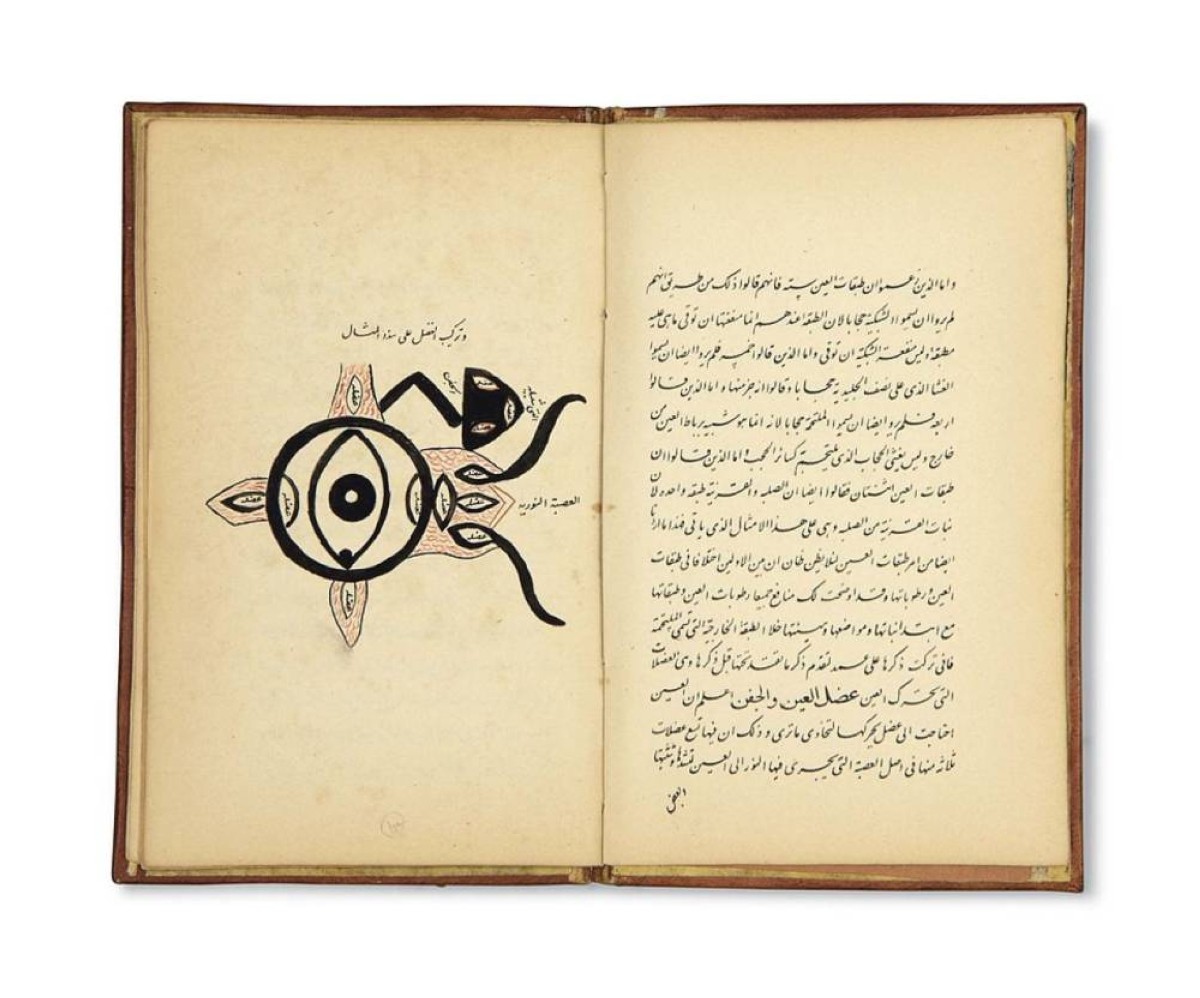 واما الذين زعموا ان طبقات العين ستة فانهم قالوا ذلك من طريق انهم
لم يروا ان يسموا الشبكية حجابا لان الطبقة عندهم انما منفعتها ان توقى ما هى عليه
مطبقة وليس منفعة الشبكية ان توقى واما الذين قالوا خمسة فلم يروا ايضا ان يسموا
الغشا الذى على نصف الجليدية حجابا وقالوا انه جزء منها واما الذين قالوا
اربعة فلم يروا ايضا ان يسموا الملتحمة حجابا لانه انما هو شبيه برباط العين من
خارج وليس يغشى الحجاب الذى يلتحم به كسائر الحجب واما الذين قالوا ان
طبقات العين اثنتان فقالوا ايضا ان الصلبه والقرنية طبقه واحده لان
نبات القرنية من الصلبه وهى على هذا الامثال الذى ياتى فهذا ما اردنا
ايضا من امر طبقات العين لئلا يظن ظان ان بين الاولين اختلافا فى طبقات
العين ورطوباتها وقد اوضحت لك منافع جميع رطوبات العين وطبقاتها
مع ابتدا نباتها ومواضعها وهيئتها خلا الطبقة الخارجية التى تسمى الملتحمة
فانى تركت ذكرها على عمد لتقدم ذكر ما نقد تحتها قبل ذكرها وهى العضلات
التى تحرك العين عضل العين والجفن اعلم ان العين
احتاجت الى عضل يحركها لتحاذى ما ترى وذلك ان فيها تسع عضلات
ثلاثه منها فى اصل العصبة التى يجرى فيها النور الى العين تشدها وتثبتها
وتركيب العضل على هذا المثال
العصبة النورية
عضله
عضله
عضله
عضله
عضله
عضله